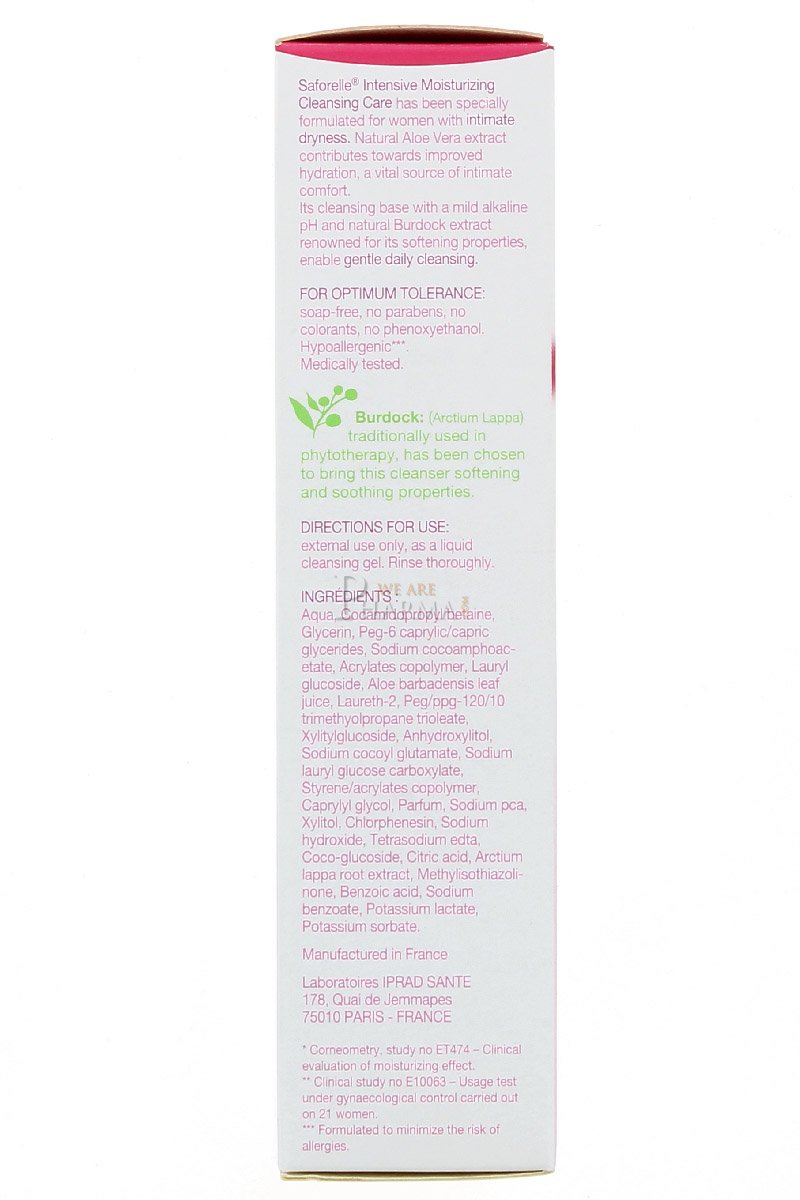 Saforelle® Intensive Moisturizing
Cleansing Care has been specially
formulated for women with intimate
dryness. Natural Aloe Vera extract
contributes towards improved
hydration, a vital source of intimate
comfort.
Its cleansing base with a mild alkaline
pH and natural Burdock extract
renowned for its softening properties,
enable gentle daily cleansing.
FOR OPTIMUM TOLERANCE:
soap-free, no parabens, no
colorants, no phenoxyethanol.
Hypoallergenic***.
Medically tested.
Burdock: (Arctium Lappa)
traditionally used in
phytotherapy, has been chosen
to bring this cleanser softening
and soothing properties.
DIRECTIONS FOR USE:
external use only, as a liquid
cleansing gel. Rinse thoroughly.
WE ARE
PHARMA
INGRÉDIENTS :
Aqua, Cocamidopropyl betaine,
Glycerin, Peg-6 caprylic/capric
glycerides, Sodium cocoamphoac-
etate, Acrylates copolymer, Lauryl
glucoside, Aloe barbadensis leaf
juice, Laureth-2, Peg/ppg-120/10
trimethylolpropane trioleate,
Xylitylglucoside, Anhydroxylitol,
Sodium cocoyl glutamate, Sodium
lauryl glucose carboxylate,
Styrene/acrylates copolymer,
Caprylyl glycol, Parfum, Sodium pca,
Xylitol, Chlorphenesin, Sodium
hydroxide, Tetrasodium edta,
Coco-glucoside, Citric acid, Arctium
lappa root extract, Methylisothiazoli-
none, Benzoic acid, Sodium
benzoate, Potassium lactate,
Potassium sorbate.
Manufactured in France
Laboratoires IPRAD SANTE
178, Quai de Jemmapes
75010 PARIS - FRANCE
* Corneometry, study no ET474 – Clinical
evaluation of moisturizing effect.
** Clinical study no E10063 – Usage test
under gynaecological control carried out
on 21 women.
*** Formulated to minimize the risk of
allergies.